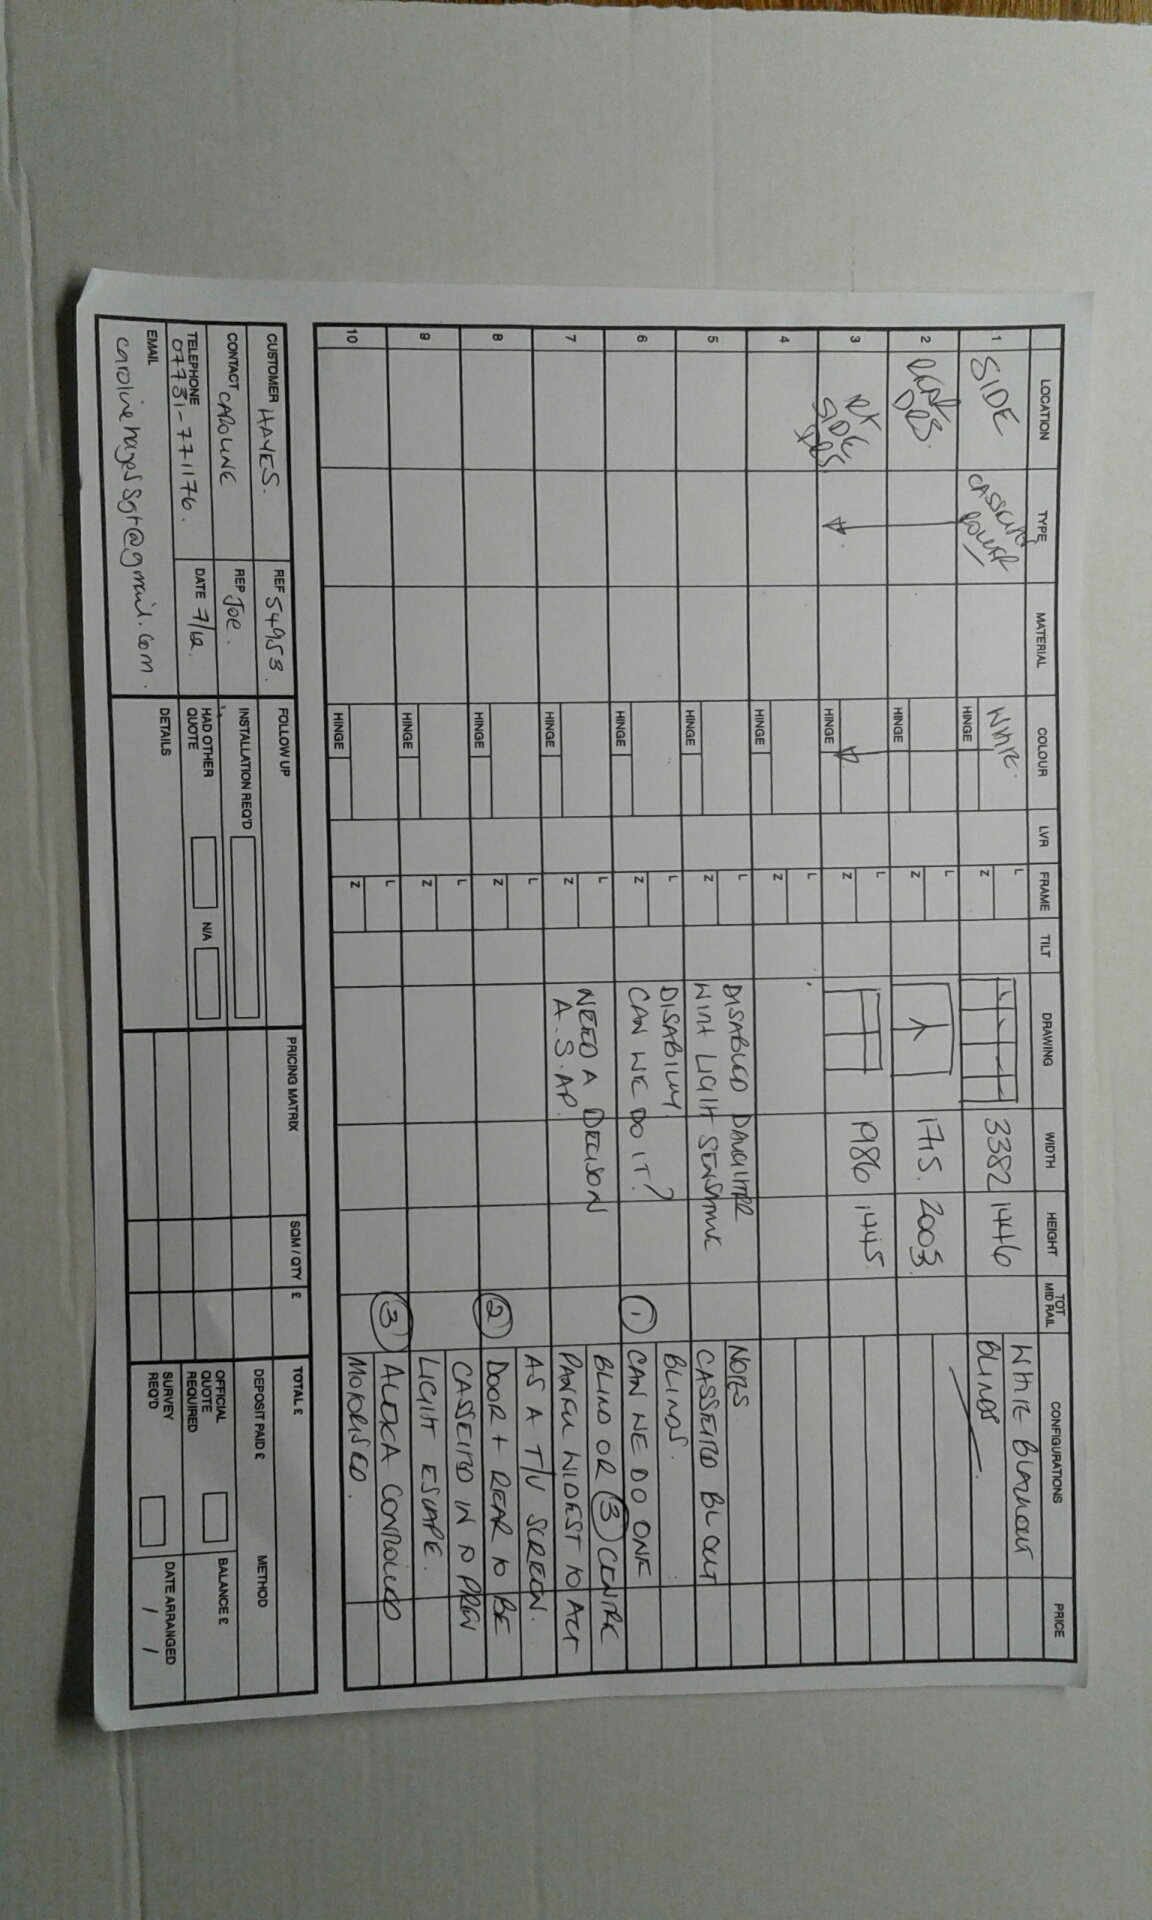 LOCATION TYPE MATERIAL COLOUR LVR FRAME TILT DRAWING WIDTH HEIGHT TOT MID RAIL CONFIGURATIONS PRICE
1 SIDE CASSETTED WHITE. HINGE L Z 3382 1446 WHITE BLACKOUT
BLINDS
2 REAR DRS. HINGE L Z 1715. 2003.
3 SIDE DRS. HINGE L Z 1986 1445.
4 HINGE L Z
5 HINGE L Z DISABLED DAUGHTER NOTES
WITH LIGHT SENSITIVE CASSETTED BL OUT
6 HINGE L Z DISABILITY BLINDS.
CAN WE DO IT? ① CAN WE DO ONE
7 HINGE L Z NEED A DECISON BLIND OR ③ CENTRE
A.S.AP. PANEL WIDEST TO ACT
8 HINGE L Z AS A T/V SCREEN.
② DOOR + REAR TO BE
9 HINGE L Z CASSETTED IN TO PREV
LIGHT ESCAPE.
10 HINGE L Z ③ ALEXA CONTROLLED
MOTORISED.
CUSTOMER HAYES. REF 54953. FOLLOW UP PRICING MATRIX SQM / QTY £ TOTAL £
CONTACT CAROLINE REP JOE. INSTALLATION REQ'D DEPOSIT PAID £ METHOD
TELEPHONE 07731-771176. DATE 7/12. HAD OTHER QUOTE N/A OFFICIAL QUOTE REQUIRED BALANCE £
EMAIL DETAILS SURVEY REQ'D DATE ARRANGED / /